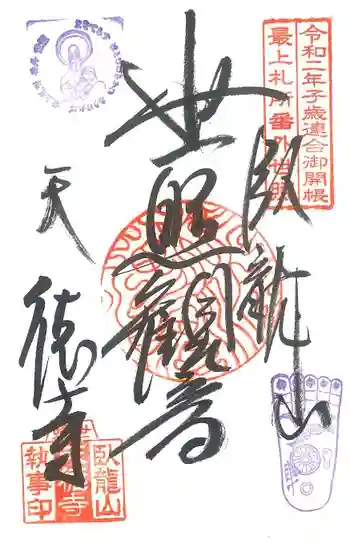 令和二年子歳連合御開帳
最上札所番外世照
臥龍山
世照観音
天徳寺
臥龍山
徳寺
執事印